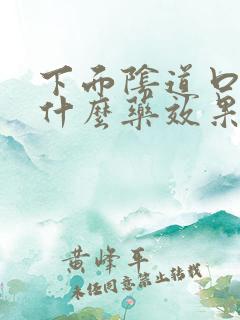 下面陰道口
什麼藥效果
黄峰平
未經同意禁止轉載